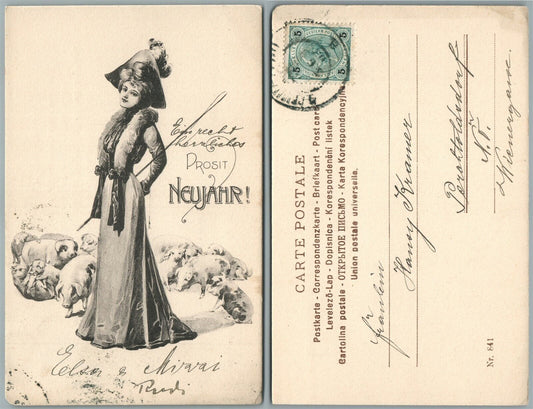 Ein recht
herzliches
PROSIT
NEUJAHR!
Elsa & Mizzi
Rudi
5
5
CARTE POSTALE
Postkarte - Correspondenzkarte - Briefkaart - Post card
Levelező-Lap - Dopisnica - Korespondenční lístek
Cartolina postale - ОТКРЫТОЕ ПИСЬМО - Karta Korespondencyjna
Union postale universelle.
Fräulein
Kramer
Perchtoldsdorf
Wienergasse.
Nr. 841